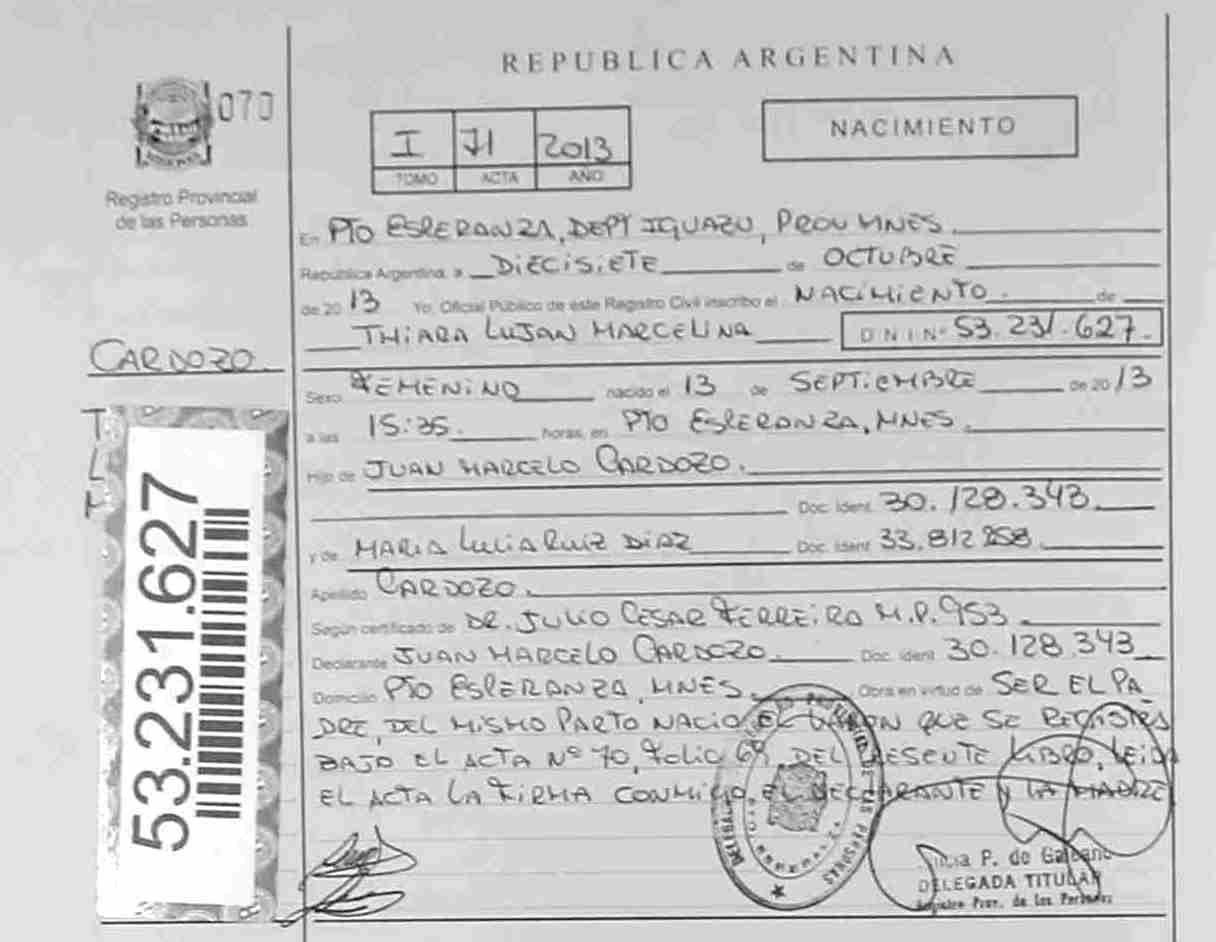 REPUBLICA ARGENTINA
070
I 71 2013
TOMO ACTA AÑO
NACIMIENTO
Registro Provincial
de las Personas
En PTO ESPERANZA, DEPT IGUAZU, PROV MNES.
República Argentina, a DIECISIETE de OCTUBRE
de 2013 Yo, Oficial Público de este Registro Civil inscribo el NACIMIENTO. de
THIARA LUJAN MARCELINA D N I Nº 53.231.627.
CARDOZO.
T L M
Sexo FEMENINO nacido el 13 de SEPTIEMBRE de 2013
a las 15:35. horas, en PTO ESPERANZA, MNES.
Hijo de JUAN MARCELO CARDOZO.
Doc. Ident. 30.128.343
y de MARIA LUCIA RUIZ DIAZ Doc. Ident. 33.812.258.
Apellido CARDOZO.
Según certificado de DR. JULIO CESAR FERREIRA M.P. 953
Declarante JUAN MARCELO CARDOZO Doc. Ident. 30.128.343
Domicilio PTO ESPERANZA, MNES. Obra en virtud de SER EL PA
DRE, DEL MISMO PARTO NACIO EL QUE SE REGISTRÓ
BAJO EL ACTA Nº 70, Folio DEL PRESENTE LIBRO, LEIDA
EL ACTA LA FIRMA CONMIGO EL DECLARANTE Y LA MADRE
53.231.627
P. de Galeano
DELEGADA TITULAR
Registro Prov. de las Personas